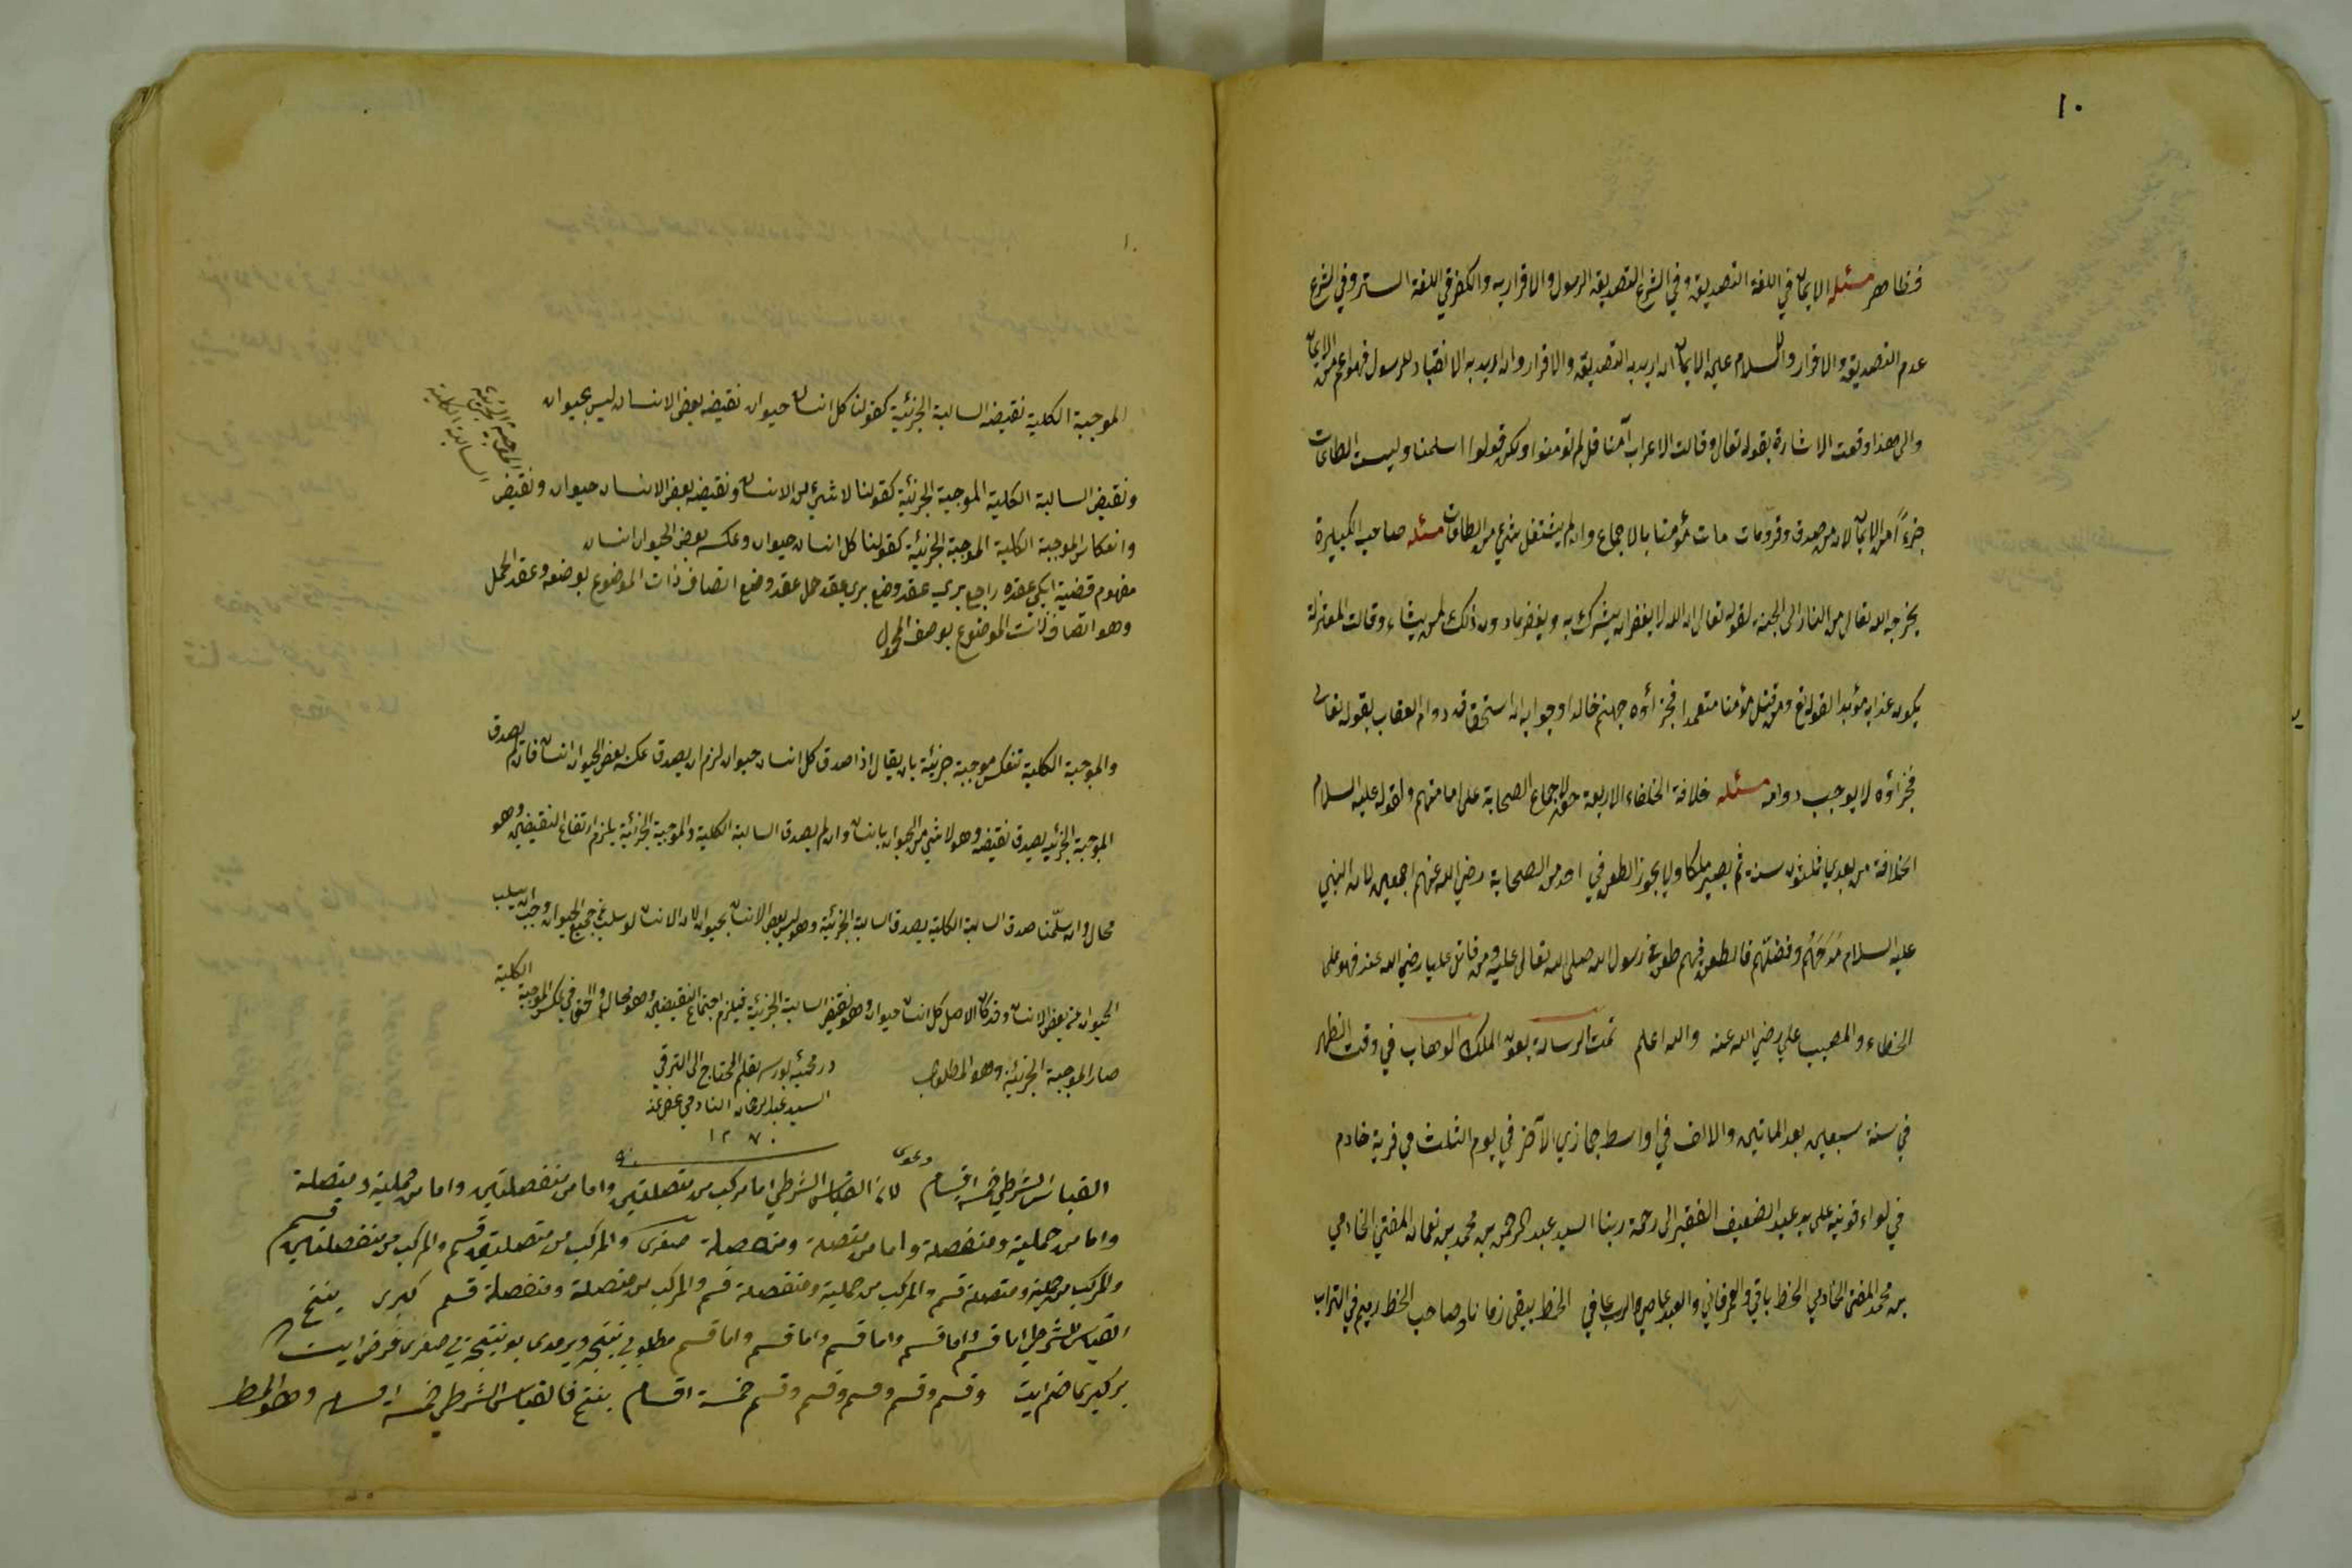 ١٠
فظاهر مسئله الايمان في اللغة التصديق وفي الشرع التصديق الرسول والاقرار به والكفر في اللغة الستر وفي الشرع
عدم التصديق والاقرار والسلام عين الايمان ان اريد به التصديق والاقرار وان اريد به الانقياد للرسول فهو اعم من الايمان
والى هذا وقعت الاشارة بقوله تعالى وقالت الاعراب آمنا قل لم تؤمنوا ولكن قولوا اسلمنا وليست الطاعات
جزءًا من الايمان لان من صدق وقر ومات مات مؤمنا بالاجماع وان لم يشتغل بشئ من الطاعات مسئله صاحب الكبيرة
يخرجه الله تعالى من النار الى الجنة لقوله تعالى ان الله لا يغفر ان يشرك به ويغفر ما دون ذلك لمن يشاء وقالت المعتزلة
يكون عذابه مؤبدا لقوله تع ومن قتل مؤمنا متعمدا فجزاؤه جهنم خالدا وجوابه ان استحقاقه دوام العقاب بقوله تعالى
فجزاؤه لا يوجب دوامه مسئله خلافة الخلفاء الاربعة حق لاجماع الصحابة على امامتهم ولقوله عليه السلام
الخلافة من بعدي ثلثون سنة ثم يصير ملكا ولا يجوز الطعن في احد من الصحابة رضي الله عنهم اجمعين لان النبي
عليه السلام مدحهم وفضلهم فالطعن فيهم طعن في رسول الله صلى الله تعالى عليه ومن قاتل عليا رضي الله عنه فهو على
الخطاء والمصيب علي رضي الله عنه والله اعلم تمت الرسالة بعون الملك الوهاب في وقت الظهر
في سنة سبعين بعد الماتين والالف في اواسط جمازي الآخر في يوم الثلث في قرية خادم
في لواء قونيه على يد عبد الضعيف الفقير الى رحمة ربنا السيد عبد الرحمن بن محمد بن نعمان المفتي الخادمي
بن محمد المفتى الخادمي الخط باقي والعمر فاني والعبد عاصي والرب عافي الخط يبقى زمانا وصاحب الخط رميم في التراب
١٠
الموجبة الكلية نقيضه السالبة الجزئية كقولنا كل انسان حيوان نقيضه بعض الانسان ليس بحيوان
ونقيض السالبة الكلية الموجبة الجزئية كقولنا لا شئ من الانسان ونقيضه بعض الانسان حيوان ونقيض
الموجبة الجزئية
السالبة الكلية
وانعكاس الموجبة الكلية الموجبة الجزئية كقولنا كل انسان حيوان وعكسه بعض الحيوان انسان
مفهوم قضية ايكي عقده راجع بري عقد وضع بري عقد حمل عقد وضع اتصاف ذات الموضوع بوضعه وعقد الحمل
وهو اتصاف ذات الموضوع بوصف المحمول
والموجبة الكلية تنعكس موجبة جزئية بان يقال اذا صدق كل انسان حيوان لزم ان يصدق عكسه بعض الحيوان انسان فان لم يصدق
الموجبة الجزئيه يصدق نقيضه وهو لا شئ من الحيوان بانسان وان لم يصدق السالبة الكلية والموجبة الجزئية يلزم ارتفاع النقيضين وهو
محال وان سلّمنا صدق السالبة الكلية يصدق السالبة الجزئية وهو ليس بعض الانسان بحيوان لان الانسان لو سلب عن جميع الحيوان وجب ان يسلب
الحيوان عن بعض الانسان وقد كان الاصل كل انسان حيوان وهو نقيض السالبة الجزئية فيلزم اجتماع النقيضين وهو محال والحق في عكس الموجبة الكلية
صار الموجبة الجزئية وهو المطلوب
در محميه بورسه بقلم المحتاج الى الترقي
السيد عبد الرحمان الخادمي عفى عنه
١٢٧٠
دعوى
القياس الشرطي خمسة اقسام لان القياس الشرطي اما مركب من متصلتين واما من منفصلتين واما من حملية ومتصلة
واما من حملية ومنفصلة واما من متصلة ومنفصلة صغرى والمركب من متصلتين قسم والمركب من منفصلتين قسم
والمركب من حملية ومتصلة قسم والمركب من حملية ومنفصلة قسم والمركب من متصلة ومنفصلة قسم كبرى ينتج
القياس الشرطي اما قسم واما قسم واما قسم واما قسم واما قسم مطلوبي نتيجه ويرمدى بو نتيجه يي صغرى فرض ايت
بر كبرى ضم ايت وقسم وقسم وقسم وقسم وقسم خمسة اقسام ينتج فالقياس الشرطي خمسة اقسام وهو المط